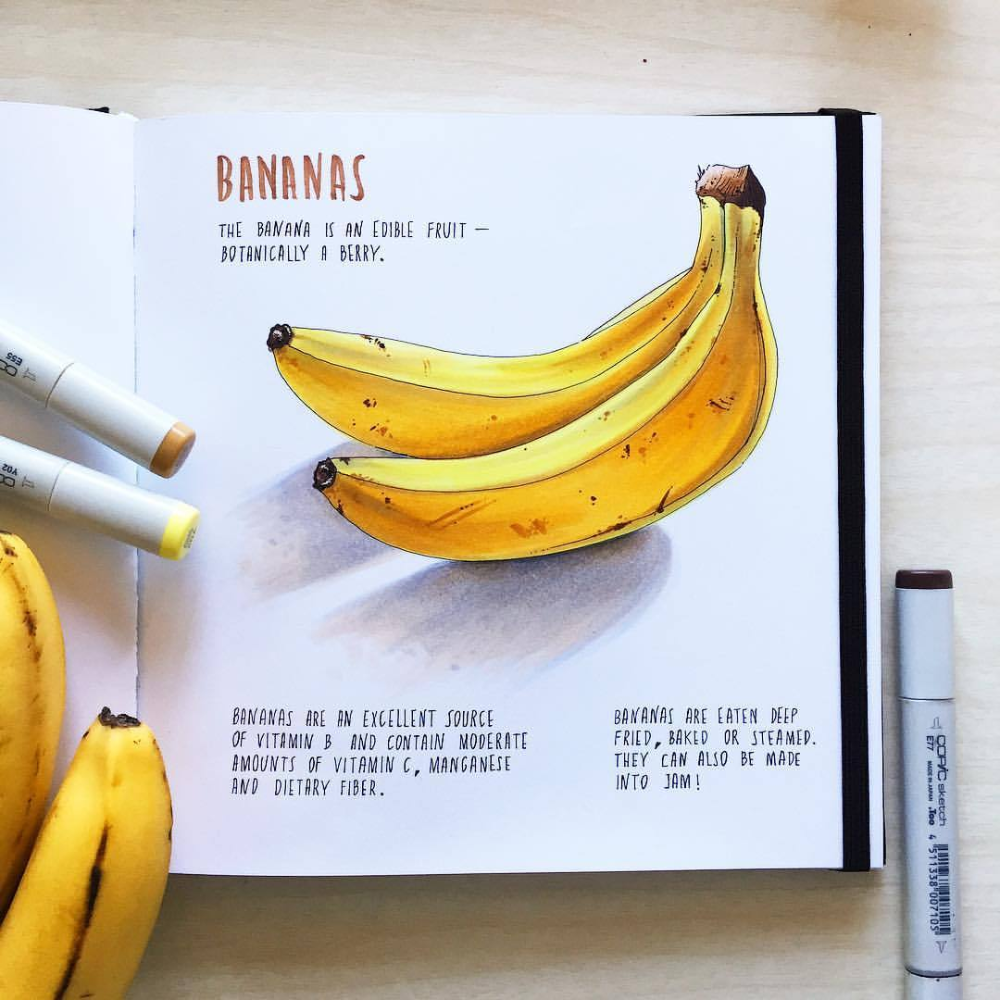 BANANAS
THE BANANA IS AN EDIBLE FRUIT —
BOTANICALLY A BERRY.
BANANAS ARE AN EXCELLENT SOURCE
OF VITAMIN B AND CONTAIN MODERATE
AMOUNTS OF VITAMIN C, MANGANESE
AND DIETARY FIBER.
BANANAS ARE EATEN DEEP
FRIED, BAKED OR STEAMED.
THEY CAN ALSO BE MADE
INTO JAM!
E55
Y02
COPIC sketch
E77 MADE IN JAPAN .Too
4 511338 007105